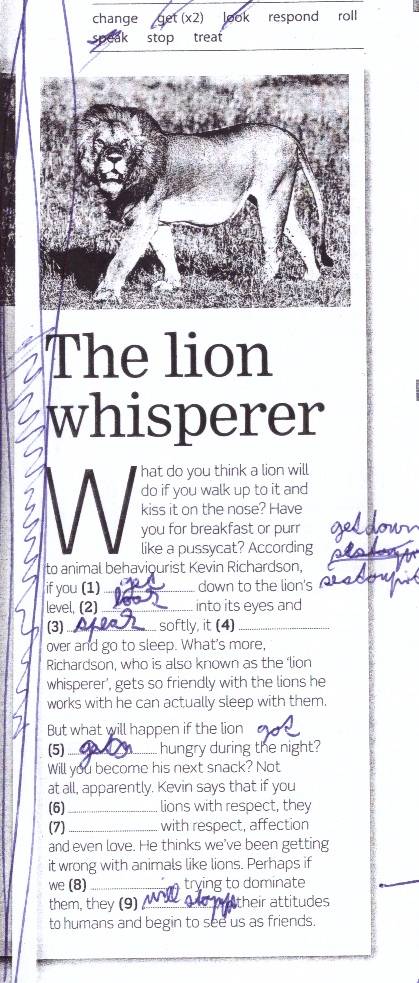 change get (x2) look respond roll
speak stop treat
The lion
whisperer
What do you think a lion will
do if you walk up to it and
kiss it on the nose? Have
you for breakfast or purr
like a pussycat? According
get down
to animal behaviourist Kevin Richardson,
if you (1) get down to the lion's
level, (2) look into its eyes and
(3) speak softly, it (4)
over and go to sleep. What's more,
Richardson, who is also known as the 'lion
whisperer', gets so friendly with the lions he
works with he can actually sleep with them.
But what will happen if the lion got
(5) hungry during the night?
Will you become his next snack? Not
at all, apparently. Kevin says that if you
(6) lions with respect, they
(7) with respect, affection
and even love. He thinks we've been getting
it wrong with animals like lions. Perhaps if
we (8) trying to dominate
them, they (9) will stop their attitudes
to humans and begin to see us as friends.